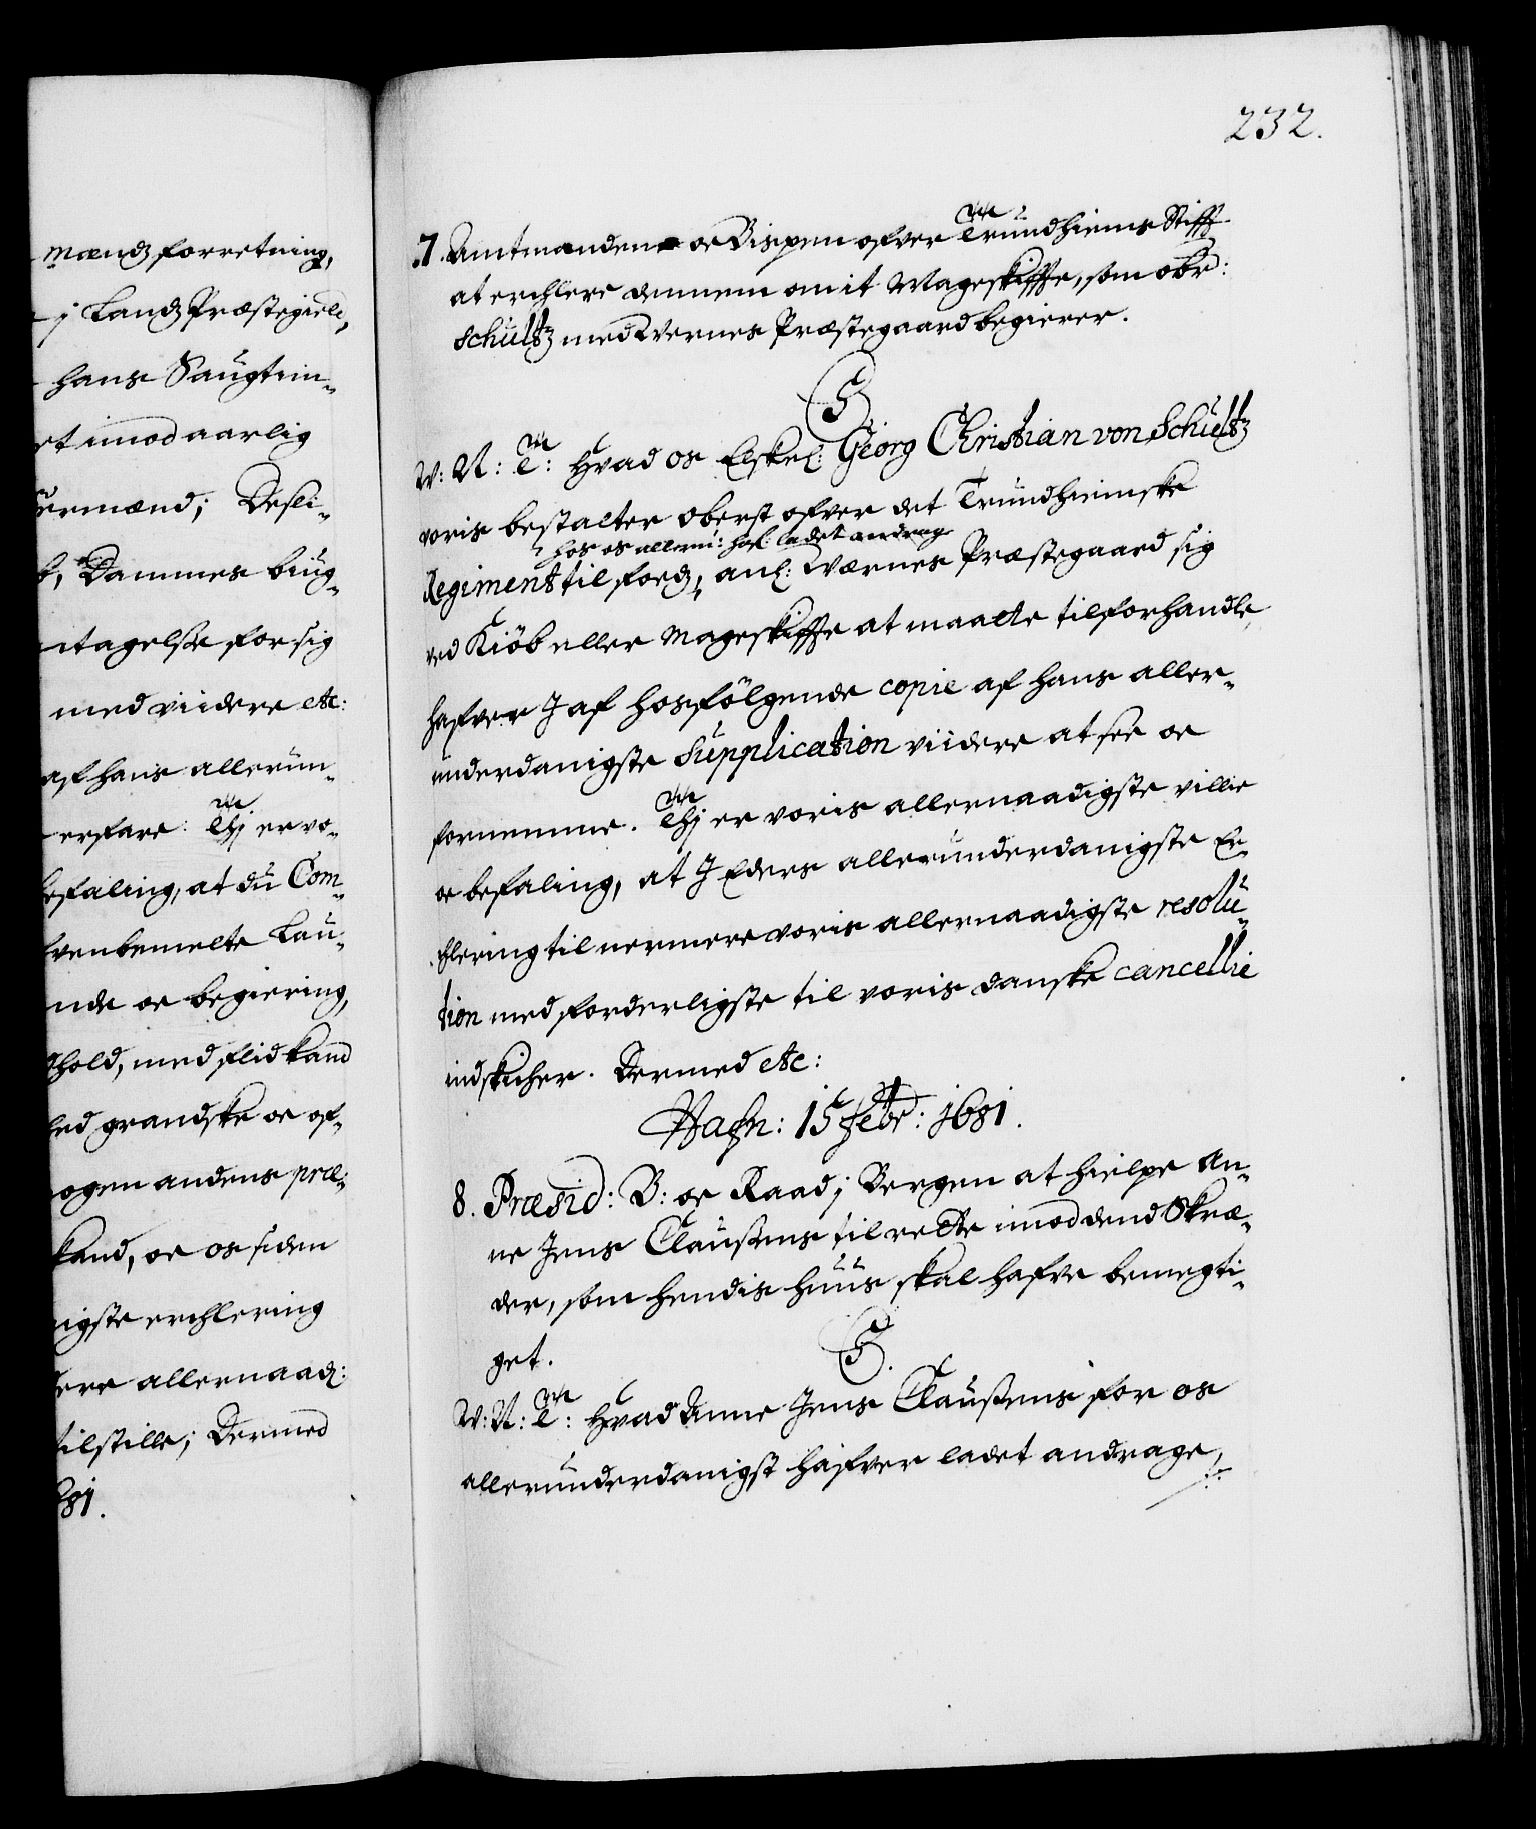 mændz forretning,
j Landz Præstegield,
hans Saugtem-
et imod aarlig
ermænd; Desli-
b, Dammes biug-
ntagelse for sig
med viidere etc:
af hans allerun-
erfare: Thj er vo-
befaling, at du Com-
venbemelte Lau-
nde oc begiering,
dhold, med flid kand
led grandske oc of-
ogen andens præ-
kand, oc os siden
nigste erchlering
dere allernaad:
tilstille; Dermed
681.
232.
7. Amtmanden oc Bispen ofver Trundhiems Stifft
at erchlere dennem om it Mageskiffte, som obr:
Schultz med Wernes Præstegaard begierer.
C5
W: A: T: Hvad os Elskel: Georg Christian von Schultz
voris bestalter Oberst ofver det Trundhiemske
hos os alleru: haf: ladet andrage
Regiment til foedz, anl: Wærnes Præstegaard sig
ved Kiöb eller Mageskiffte at maatte tilforhandle,
hafver J af hosfölgende copie af hans aller-
underdanigste Supplication viidere at see oc
fornemme. Thj er voris allernaadigste villie
oc befaling, at J Eders allerunderdanigste Er-
chlering til nermere voris allernaadigste resolu-
tion med forderligste til voris danske cancellie
indskicher. Dermed etc:
Hafn: 15 Febr: 1681.
8. Præsid: B: oc Raad j Bergen at hielpe An-
ne Jens Clausens til rette imod dend Skræ-
der, som hendis huus skal hafve bemegti-
get.
C5.
W: A: T: Hvad Anne Jens Clausens for os
allerunderdanigst hafver ladet andrage,